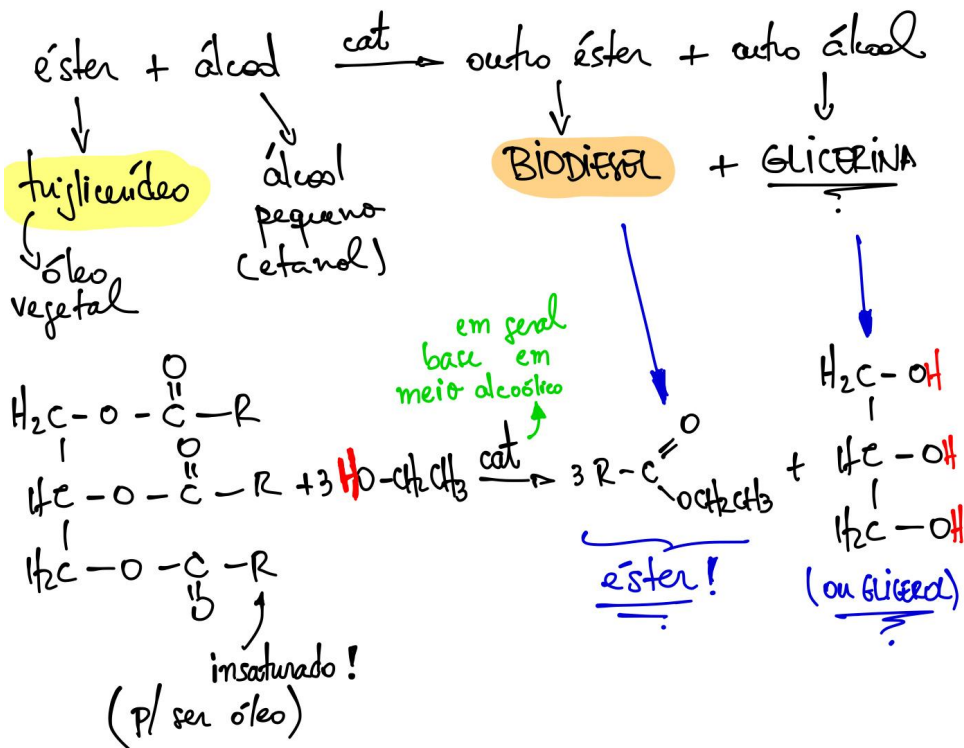 éster + álcool cat → outro éster + outro álcool
triglicerídeo
álcool
pequeno
(etanol)
BIODIESEL + GLICERINA
óleo
vegetal
em geral
base em
meio alcoólico
H₂C - O - C - R
O
HC - O - C - R + 3 HO - CH₂CH₃ cat → 3 R - C
O
OCH₂CH₃
+
H₂C - O - C - R
O
O
H₂C - OH
HC - OH
H₂C - OH
éster!
(ou GLICEROL)
insaturado!
(p/ ser óleo)